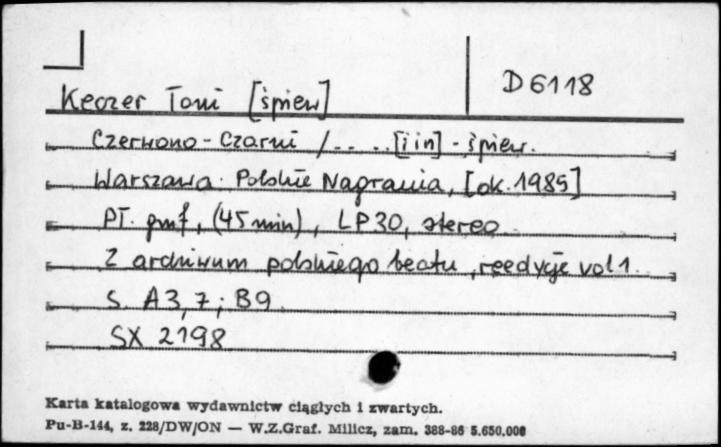 D 6118
Keczer Toni [śpiew]
Czerwono-Czarni / . . . . [i in] - śpiew.
Warszawa: Polskie Nagrania, [ok. 1985]
Pł. gmf, (45 min), LP30, stereo
Z archiwum polskiego beatu, reedycje vol 1.
S. A3, 7; B9
SX 2198
Karta katalogowa wydawnictw ciągłych i zwartych.
Pu-B-144, z. 228/DW/ON — W.Z.Graf. Milicz, zam. 388-86 5.650.000